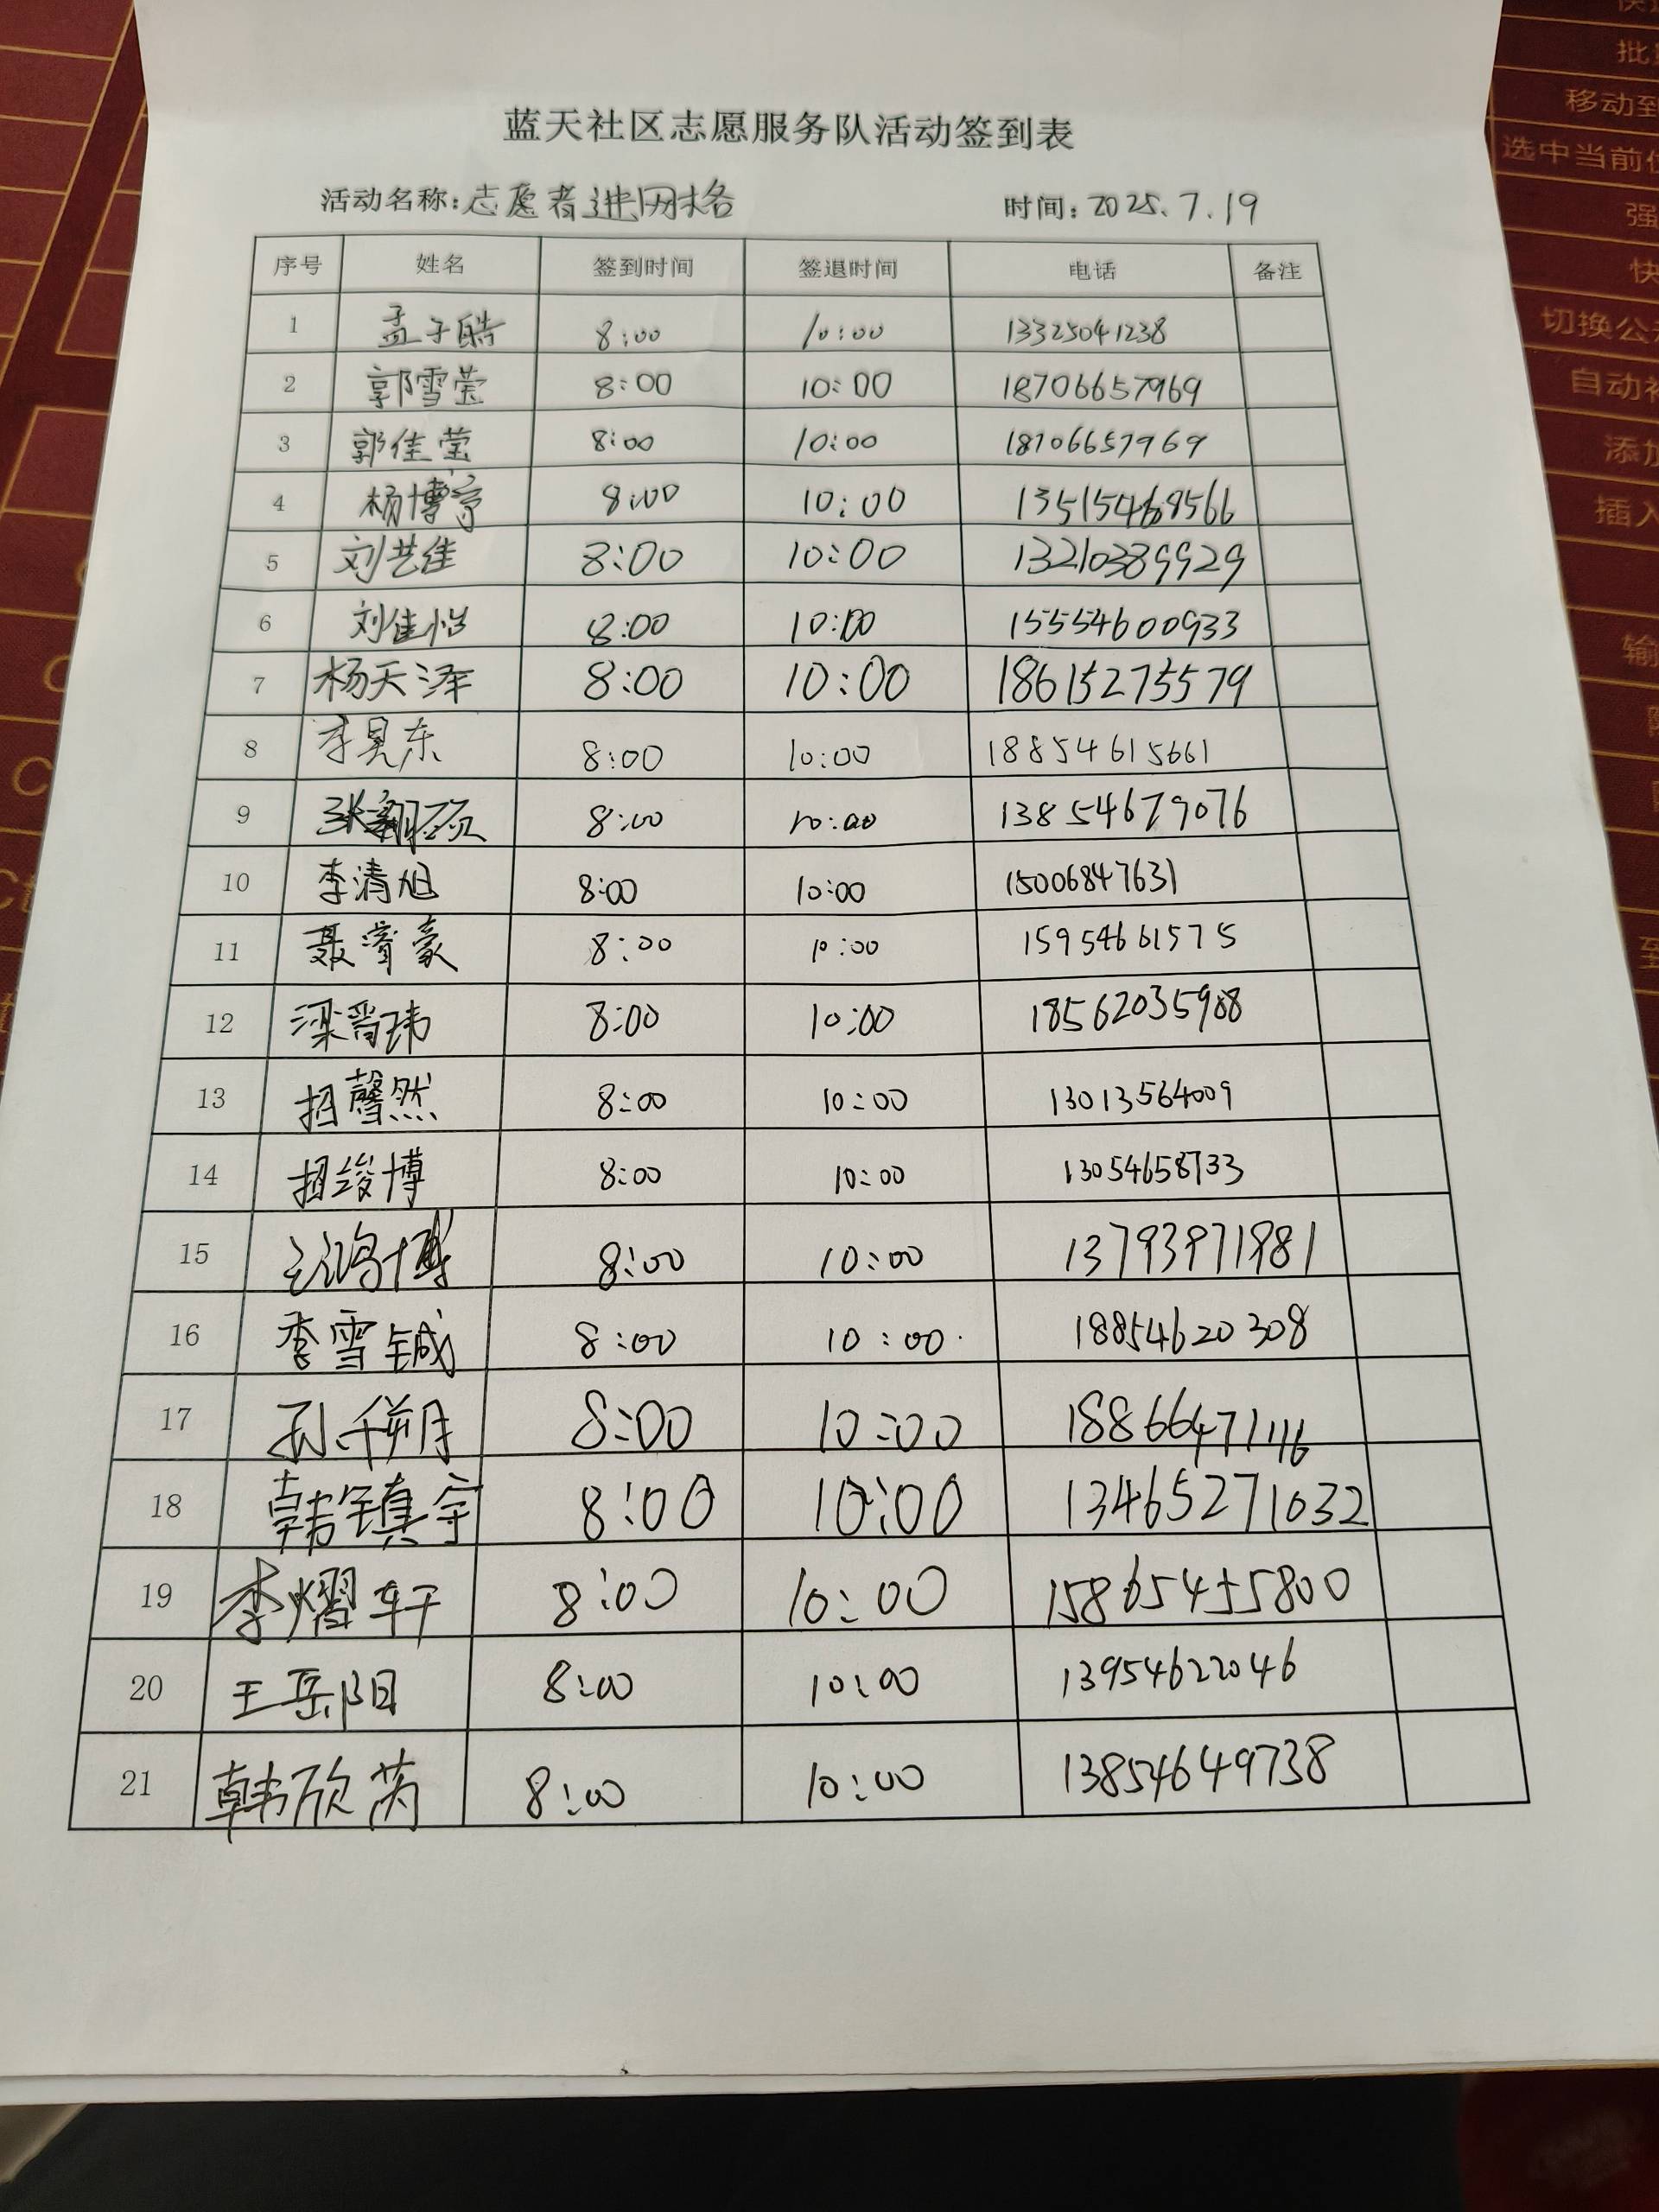 蓝天社区志愿服务队活动签到表
活动名称:志愿者进网格 时间:2025.7.19
序号 姓名 签到时间 签退时间 电话 备注
1 孟子皓 8:00 10:00 13325041238
2 郭雪莹 8:00 10:00 18706657969
3 郭佳莹 8:00 10:00 18706657969
4 杨博 8:00 10:00
5 刘艺佳 8:00 10:00 13210389929
6 刘佳怡 8:00 10:00 15554600933
7 杨天泽 8:00 10:00 18615275579
8 李昊东 8:00 10:00 18854615661
9 张 8:00 10:00 13854679076
10 李清旭 8:00 10:00 15006847631
11 聂濬豪 8:00 10:00 15954661575
12 梁霄玮 8:00 10:00 18562035908
13 馨然 8:00 10:00 13013564009
14 竣博 8:00 10:00 13054658733
15 鸿博 8:00 10:00 13793971981
16 李雪铖 8:00 10:00 18854620308
17 孙千朔 8:00 10:00 18866471116
18 韩镇宇 8:00 10:00 13465271032
19 李熠轩 8:00 10:00 15865455800
20 王岳阳 8:00 10:00 13954622046
21 韩欣芮 8:00 10:00 13854649738
批
移动到
选中当前
强
快
切换公
自动
添加
插入
输
至